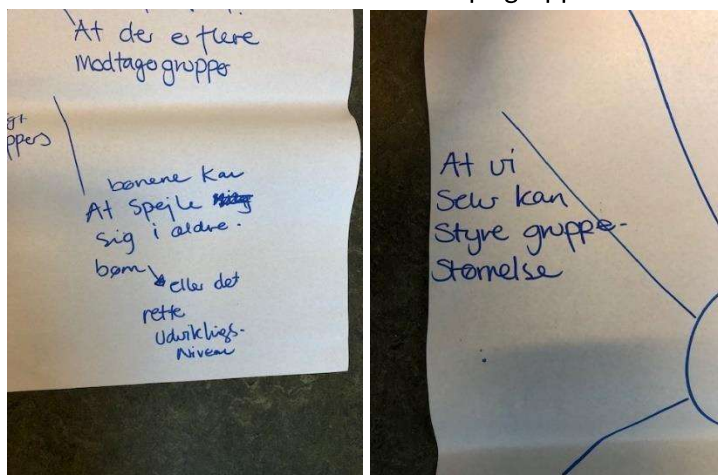 At der er flere
Modtagegrupper
ppers
bønene kan
At spejle
sig i ældre.
børn
eller det
rette
Udviklings-
Niveau
At vi
Selv kan
Styre gruppe-
Størrelse